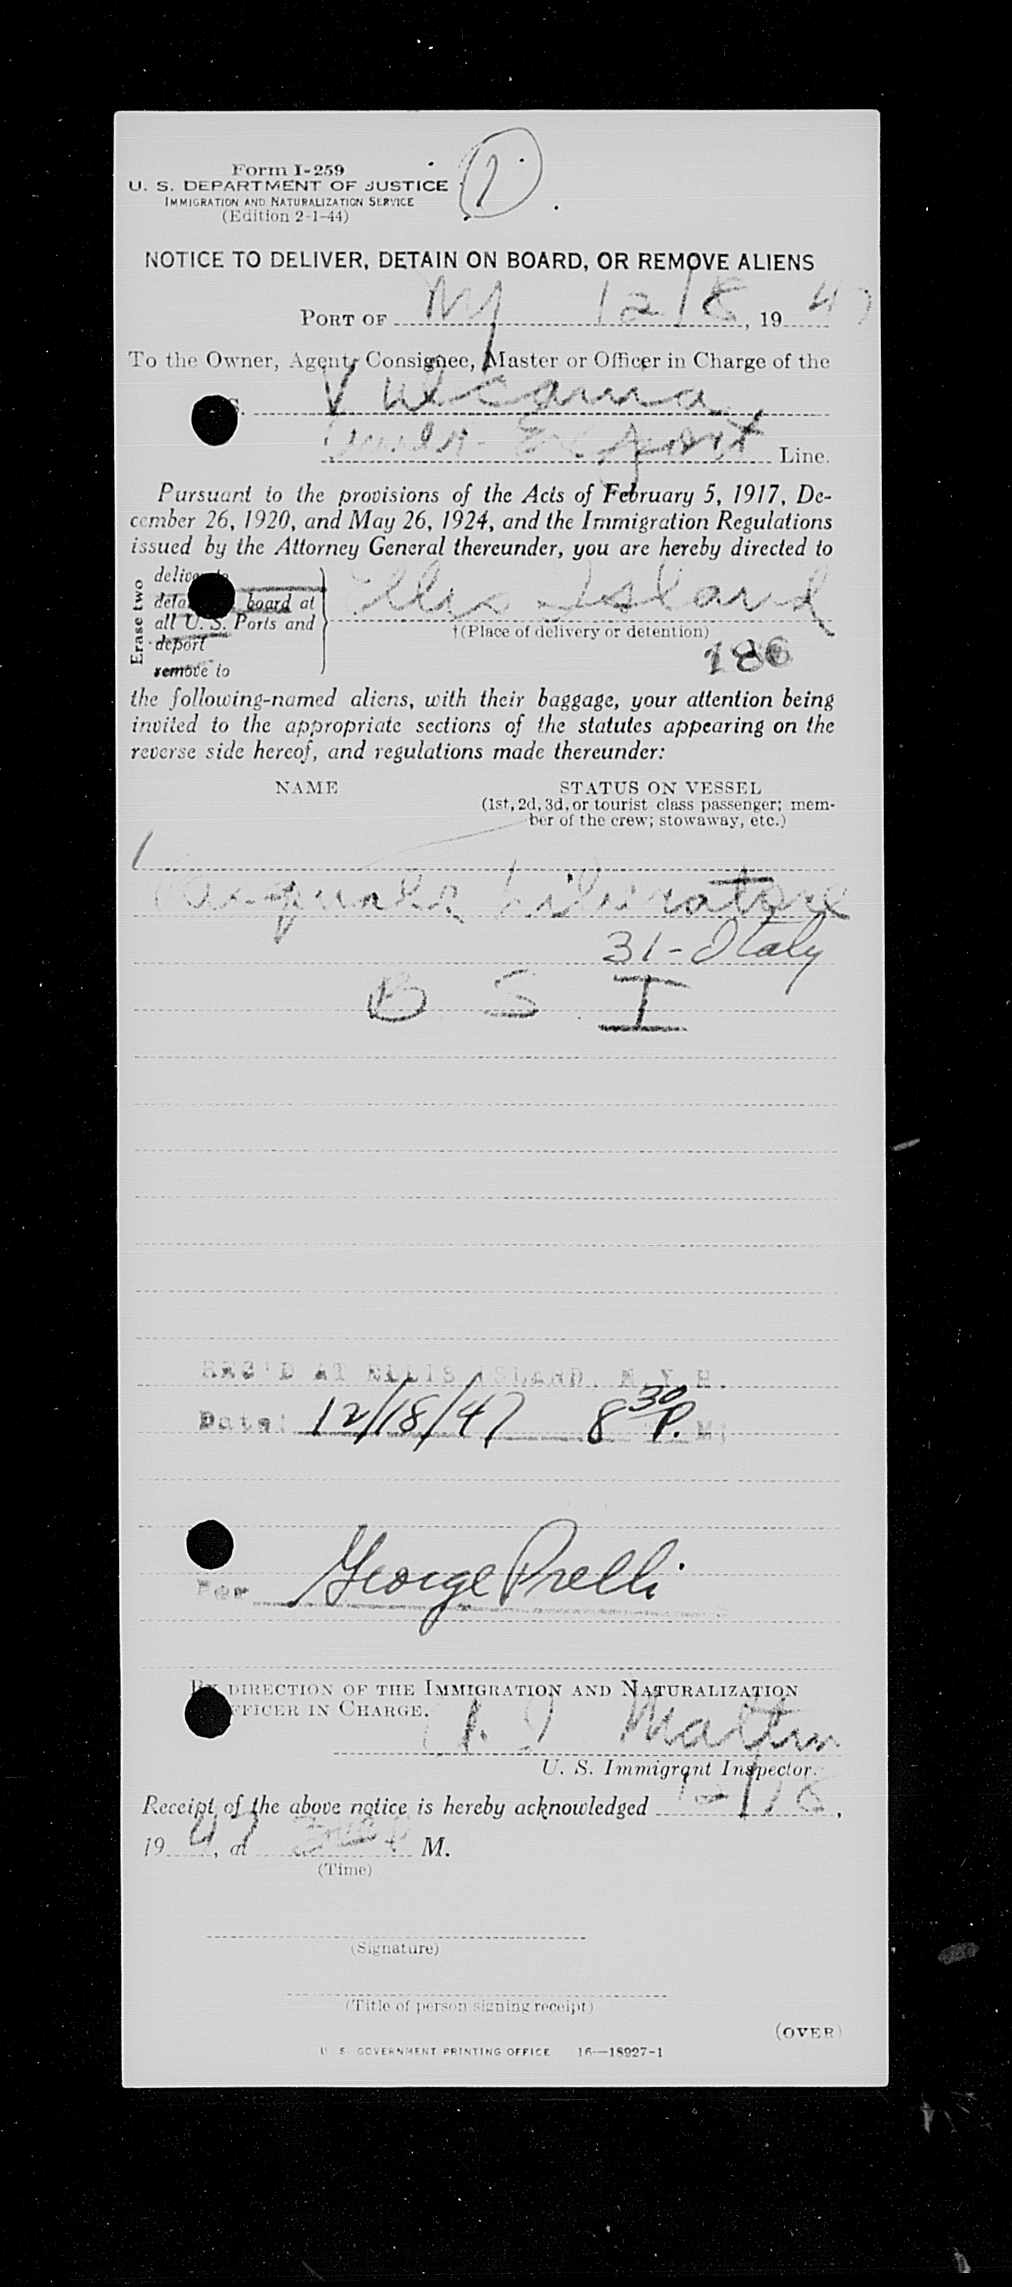 Form I-259
1
U. S. DEPARTMENT OF JUSTICE
IMMIGRATION AND NATURALIZATION SERVICE
(Edition 2-1-44)
NOTICE TO DELIVER, DETAIN ON BOARD, OR REMOVE ALIENS
PORT OF NY 12/8, 1947
To the Owner, Agent, Consignee, Master or Officer in Charge of the
S. Vulcania
Export Line.
Pursuant to the provisions of the Acts of February 5, 1917, De-
cember 26, 1920, and May 26, 1924, and the Immigration Regulations
issued by the Attorney General thereunder, you are hereby directed to
Erase two
deliver to
detain board at
all U. S. Ports and
deport
remove to
Ellis Island
†(Place of delivery or detention)
186
the following-named aliens, with their baggage, your attention being
invited to the appropriate sections of the statutes appearing on the
reverse side hereof, and regulations made thereunder:
NAME STATUS ON VESSEL
(1st, 2d, 3d, or tourist class passenger; mem-
ber of the crew; stowaway, etc.)
1
Pasquale Liberatore
31-Italy
B S I
REC'D AT ELLIS ISLAND, N.Y.H.
Date: 12/18/47 8 30 P. M.
Per George Prelli
BY DIRECTION OF THE IMMIGRATION AND NATURALIZATION
OFFICER IN CHARGE.
J Martin
U. S. Immigrant Inspector.
Receipt of the above notice is hereby acknowledged 12/18,
1947, at M.
(Time)
(Signature)
(Title of person signing receipt)
(OVER)
U. S. GOVERNMENT PRINTING OFFICE 16—18927-1